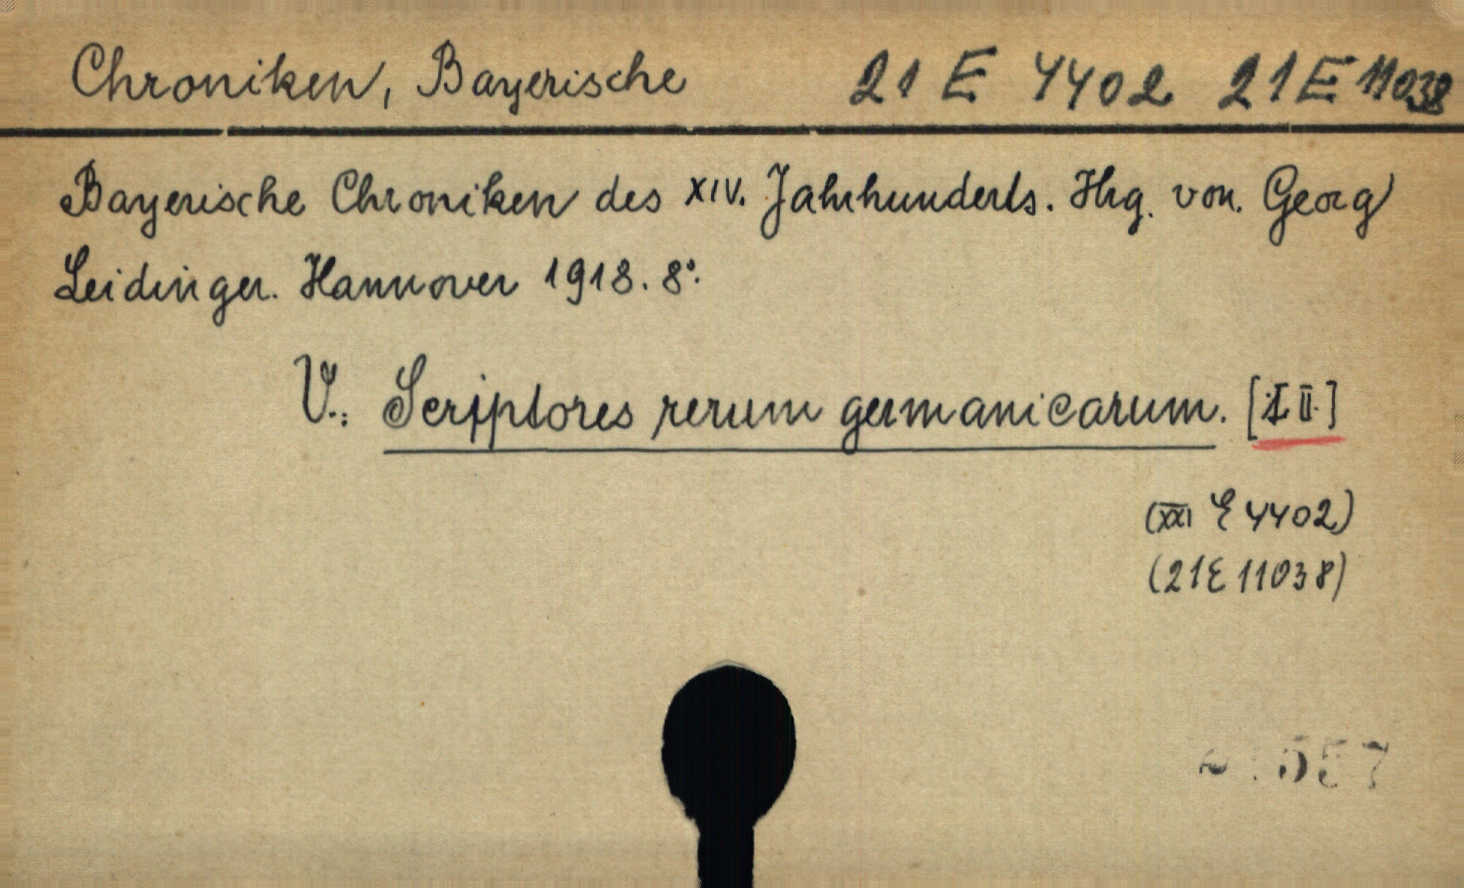 Chroniken, Bayerische 21 E 4402 21 E 11038
Bayerische Chroniken des XIV. Jahrhunderts. Hrg. von. Georg
Leidinger. Hannover 1918. 8°.
V.: Scriptores rerum germanicarum. [I II]
(XXI E 4402)
(21 E 11038)
557